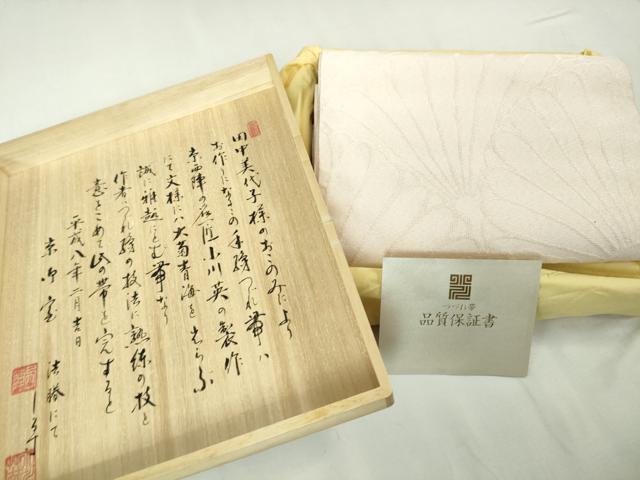 田中美代子様のおこのみにより
お作りになるこの手織つづれ帯は
京西陣の名匠小川英の製作
にて文様には大菊青海をえらぶ
誠に雅趣に富む帯なり
作者つづれ織の技法に熟練の技と
意とこめて此の帯を完すると
平成八年二月吉日
しるす
つづれ帯
品質保証書